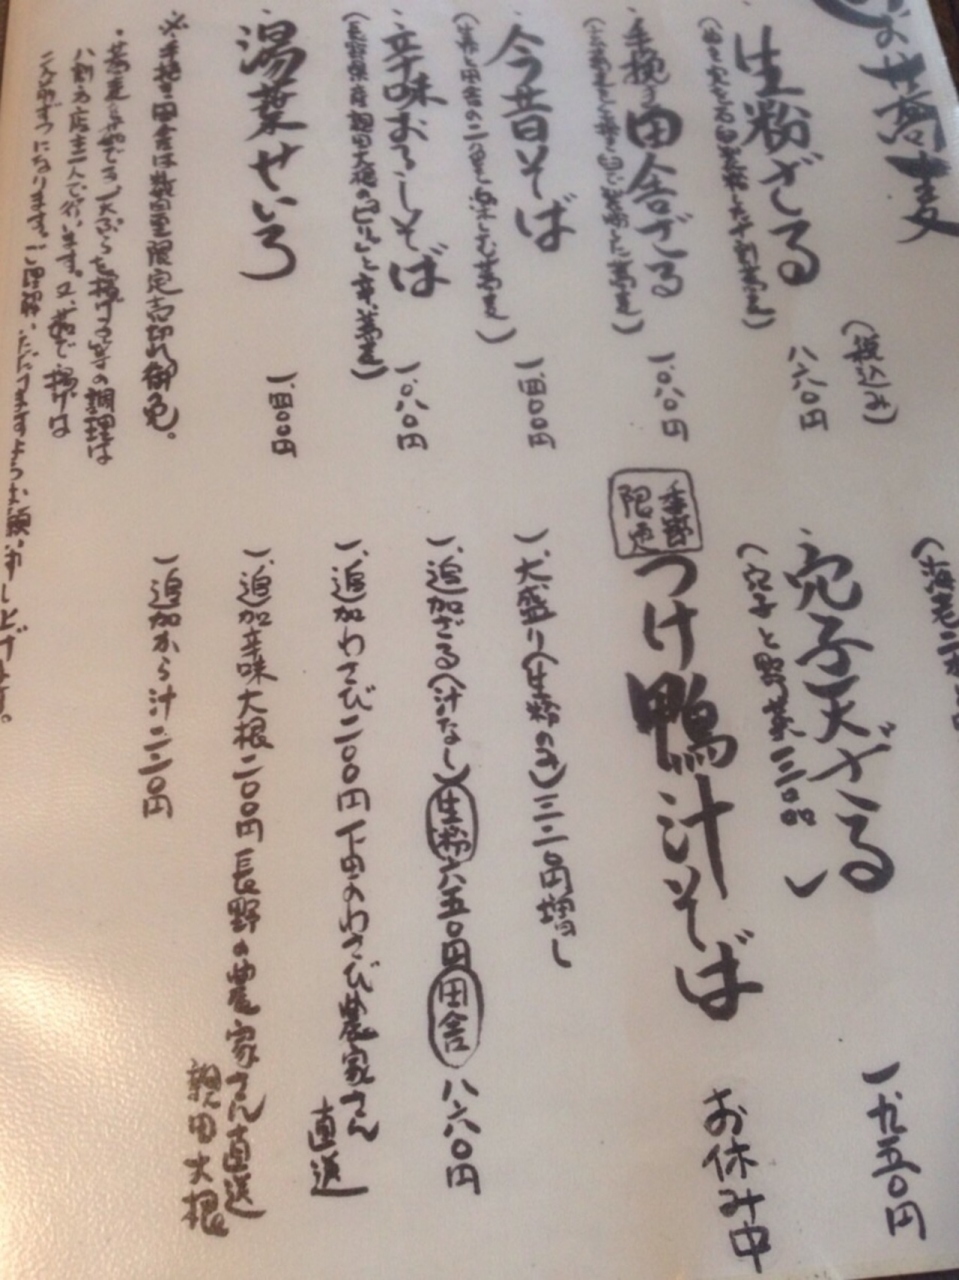 お蕎麦
(税込み)
生粉ざる 八六〇円
した十割蕎麦)
手挽き田舎ざる 一〇八〇円
今昔そば 一、四〇〇円
(生粉と田舎の二色を楽しむ蕎麦)
辛味おろしそば 一〇八〇円
(長野県産親田大根のピリッと辛い蕎麦)
湯葉せいろ 一、四〇〇円
※手挽き田舎は数量限定売切れ御免。
・蕎麦を茹でる、天ぷらを揚げる等の調理は
八割方店主一人で行います。又、茹で、揚げは
二人前ずつになります。ご理解いただけますようお願い申し上げます。
穴子天ざる 一九五〇円
(穴子と野菜
季節限定 つけ鴨汁そば お休み中
一、大盛り(生粉のみ)三二〇円増し
一、追加ざる(汁なし)生粉六五〇円 田舎 八六〇円
一、追加わさび二〇〇円 下田のわさび農家さん直送
一、追加辛味大根二〇〇円 長野の農家さん直送 親田大根
一、追加から汁二二〇円